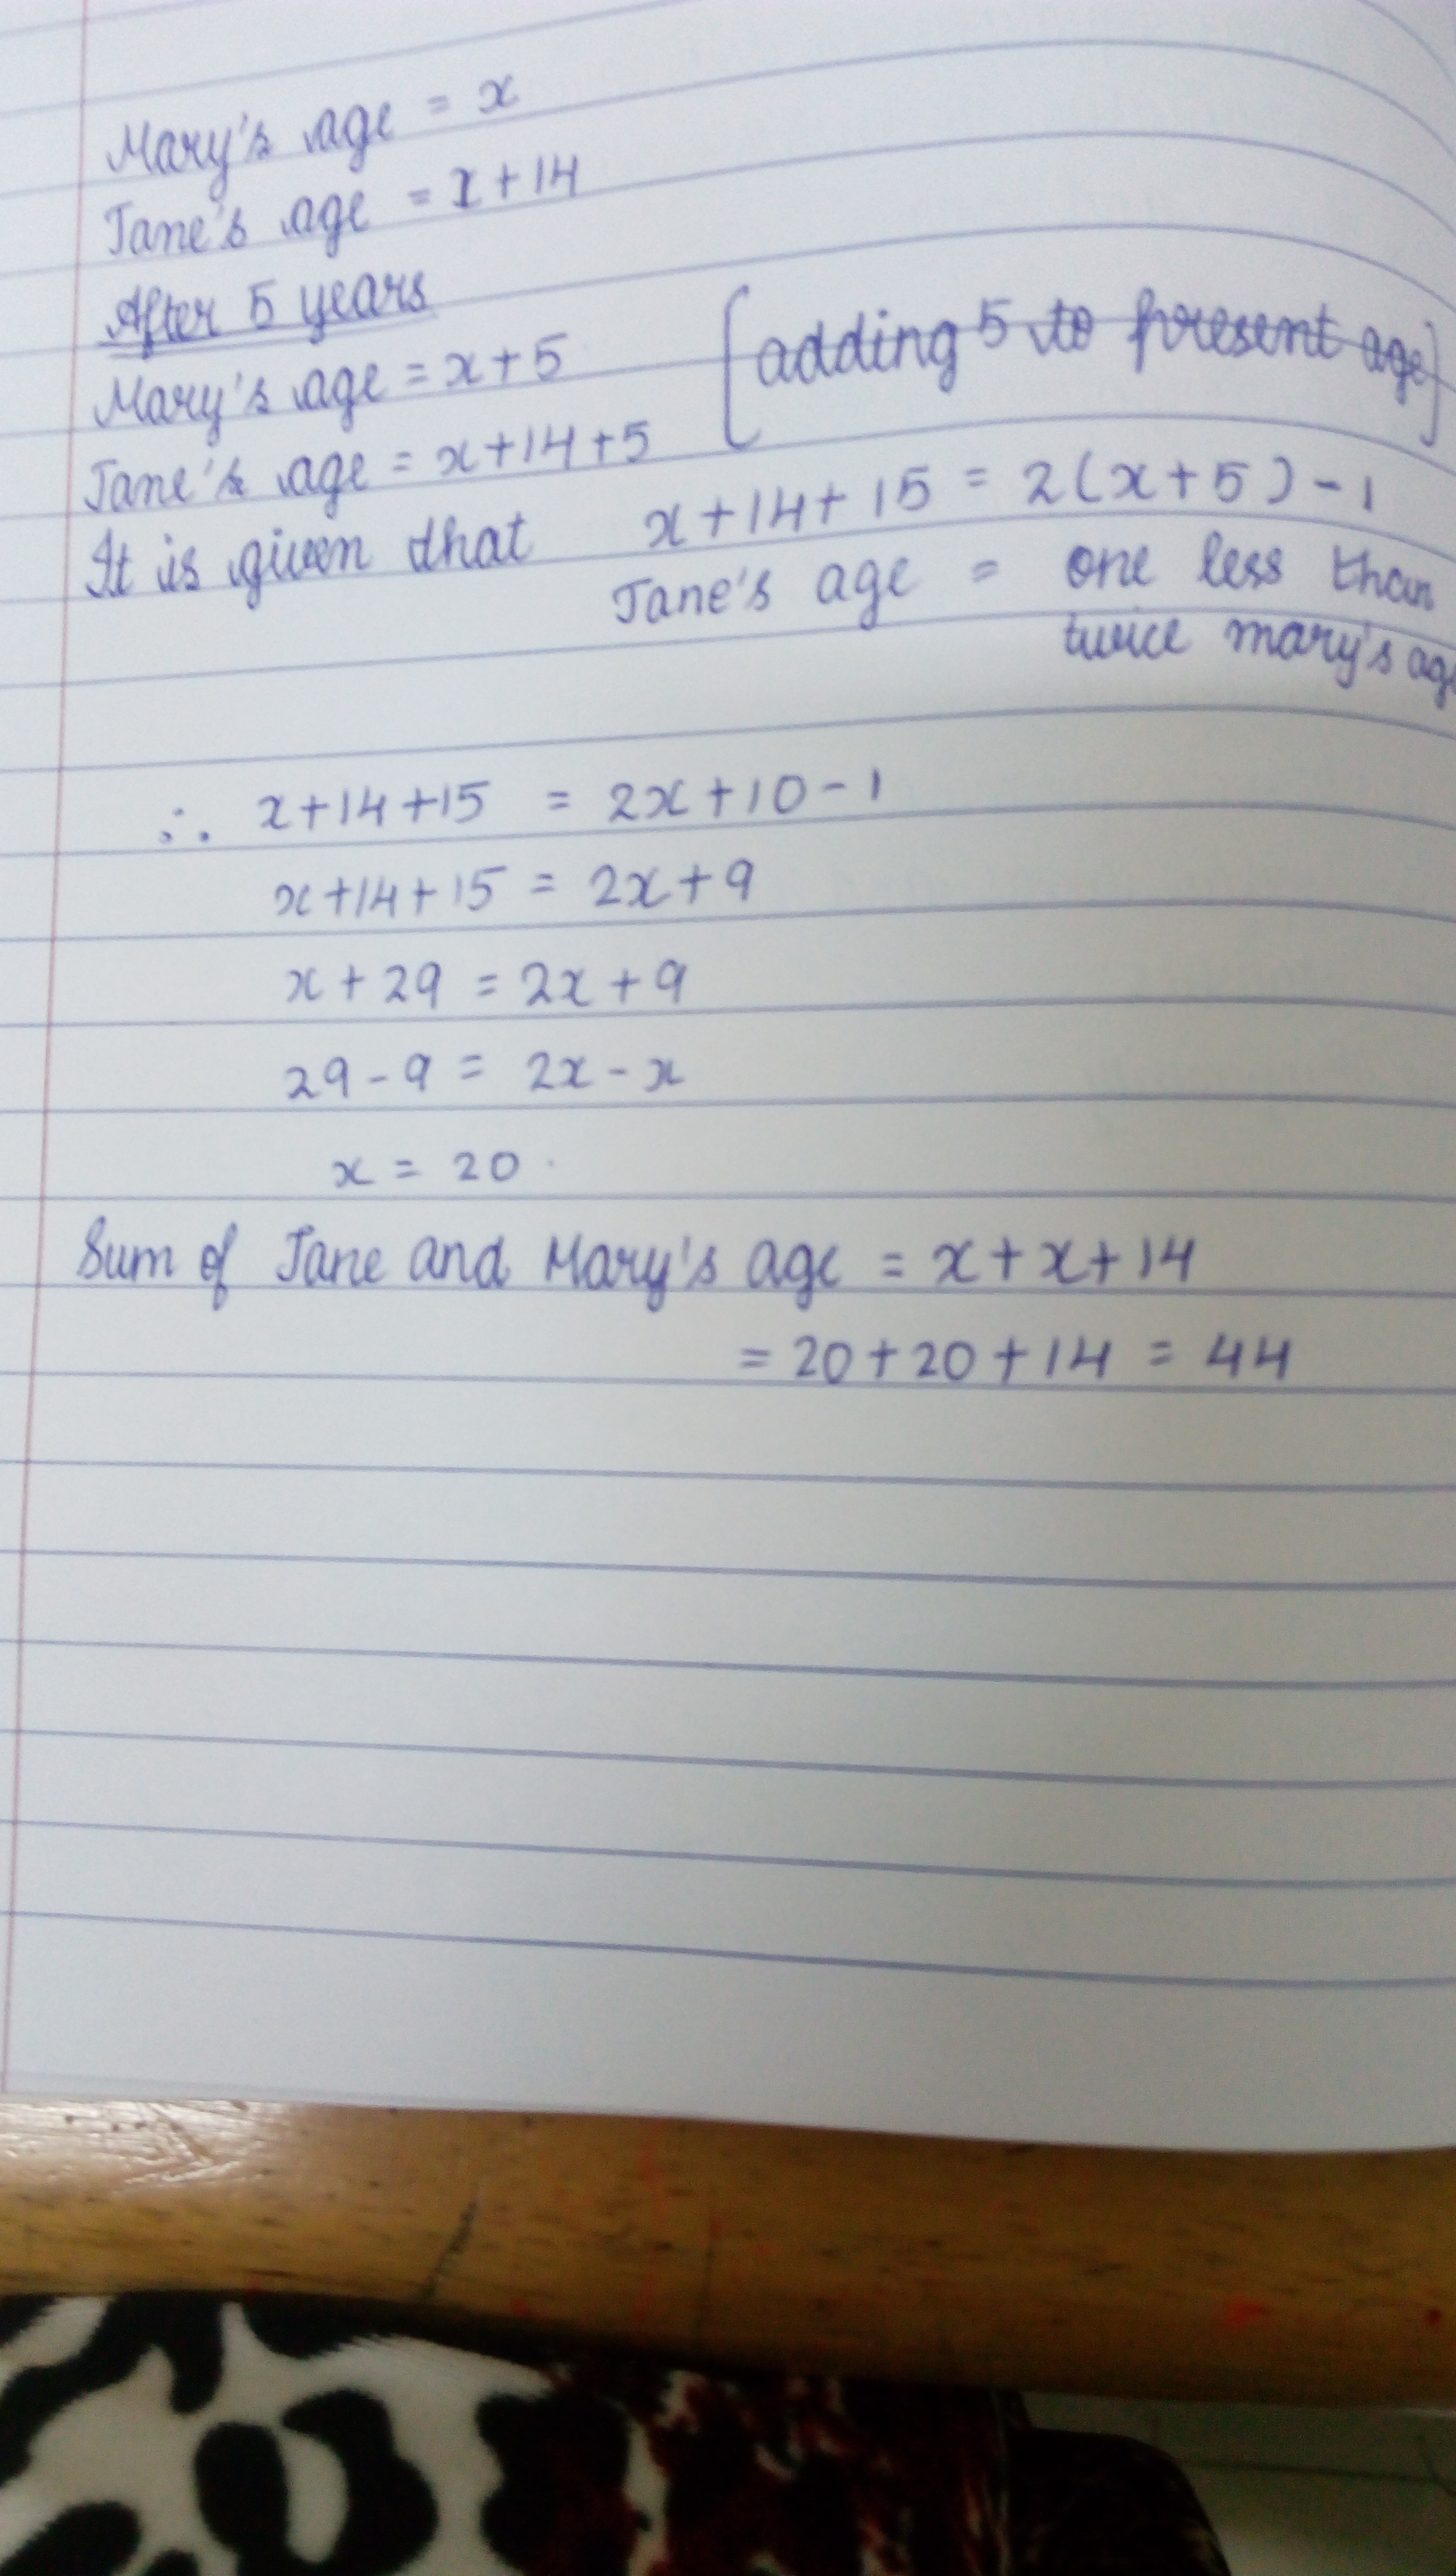 Mary's age = x
Jane's age = x + 14
After 5 years
Mary's age = x + 5 [adding 5 to present age]
Jane's age = x + 14 + 5
It is given that x + 14 + 15 = 2(x + 5) - 1
Jane's age = one less than
twice mary's age
∴ x + 14 + 15 = 2x + 10 - 1
x + 14 + 15 = 2x + 9
x + 29 = 2x + 9
29 - 9 = 2x - x
x = 20
Sum of Jane and Mary's age = x + x + 14
= 20 + 20 + 14 = 44